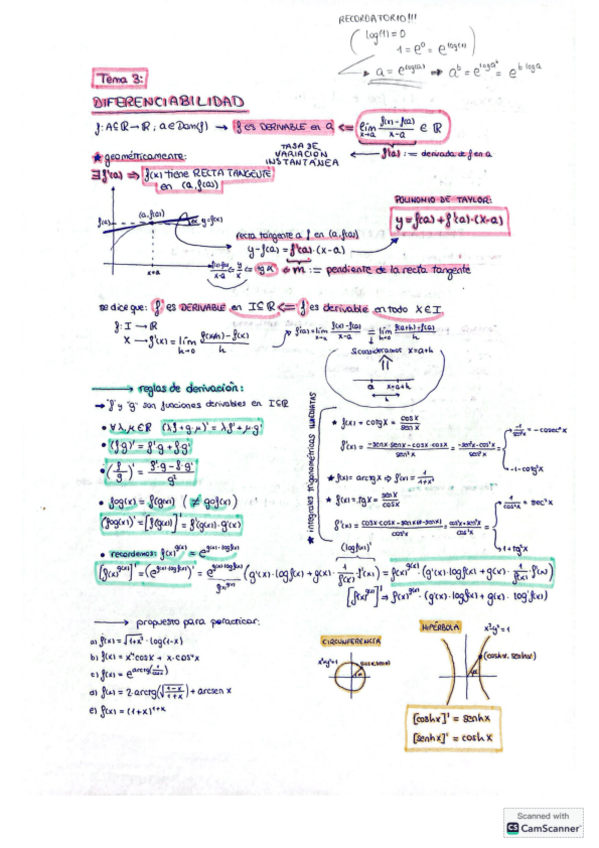 RECORDATORIO!!!
log(1) = 0
1 = e⁰ = e^log(1)
a = e^log(a) ⇒ a^b = e^log a^b = e^b·log a
Tema 3:
DIFERENCIABILIDAD
f: A⊆ℝ → ℝ ; a∈Dom(f) → f es DERIVABLE en a <=> lim x→a (f(x)-f(a))/(x-a) ∈ ℝ
★ geométricamente:
TASA DE VARIACIÓN INSTANTÁNEA
f'(a) := derivada de f en a
∃ f'(a) ⇒ f(x) tiene RECTA TANGENTE
en (a, f(a))
POLINOMIO DE TAYLOR:
y = f(a) + f'(a)·(x-a)
(a, f(a))
f(a)
y = f(x)
recta tangente a f en (a, f(a))
y - f(a) = f'(a)·(x-a)
m := pendiente de la recta tangente
se dice que: f es DERIVABLE en I⊆ℝ <=> f es derivable en todo x∈I.
f: I → ℝ
x → f'(x) = lim h→0 (f(x+h) - f(x))/h
f'(a) = lim x→a (f(x)-f(a))/(x-a) = lim h→0 (f(a+h)-f(a))/h
Si consideramos x = a+h
a x=a+h
h
→ reglas de derivación:
→ "f" y "g" son funciones derivables en I⊆ℝ
• ∀λ,μ∈ℝ (λf + g·μ)' = λf' + μg'
• (f·g)' = f'g + fg'
• (f/g)' = (f'·g - f·g')/g²
• fog(x) = f(g(x)) (≠ gof(x))
(fog(x))' = [f(g(x))]' = f'(g(x))·g'(x)
• recordemos: f(x)^g(x) = e^g(x)·log f(x)
★ integrales trigonométricas INMEDIATAS
★ f(x) = cotg x = cos x / sen x
f'(x) = (-sen x·sen x - cos x·cos x)/sen²x = (-sen²x - cos²x)/sen²x =
-1/sen²x = -cosec²x
-1-cotg²x
★ f(x) = arctg x ⇒ f'(x) = 1/(1+x²)
★ f(x) = tg x = sen x / cos x
f'(x) = (cos x·cos x - sen x·(-sen x))/cos²x = (cos²x + sen²x)/cos²x =
1/cos²x = sec²x
1+tg²x
(log f(x))'
[f(x)^g(x)]' = (e^g(x)·log f(x))' = e^g(x)·log f(x) (g'(x)·log f(x) + g(x)·1/f(x)·f'(x)) = f(x)^g(x)·(g'(x)·log f(x) + g(x)·1/f(x)·f'(x))
f(x)^g(x)
[f(x)^g(x)]' ⇒ f(x)^g(x)·(g'(x)·log f(x) + g(x)·log' f(x))
→ propuesto para practicar:
a) f(x) = √(1+x²) · log(1-x)
c) f(x) = e^arctg(1/cos x)
d) f(x) = 2·arctg(√((1-x)/(1+x))) + arcsen x
e) f(x) = (1+x)^(1+x)
CIRCUNFERENCIA
x²+y²=1
HIPÉRBOLA
x²-y²=1
(cosh x, senh x)
[cosh x]' = senh x
[senh x]' = cosh x
Scanned with
CS CamScanner